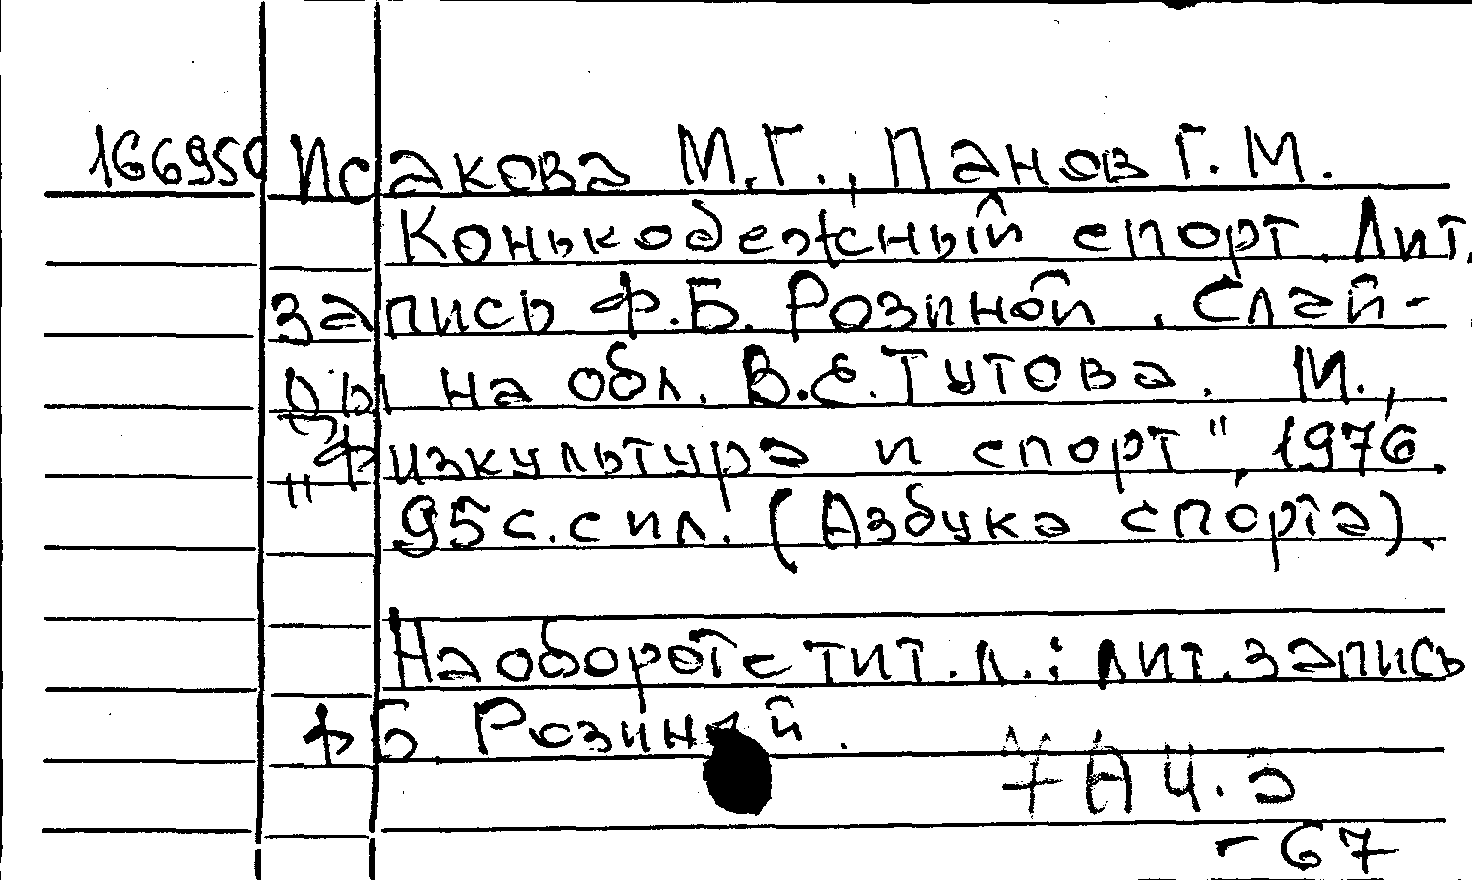 166950 Исакова М.Г., Панов Г.М.
Конькобежный спорт. Лит.
запись Ф.Б. Розиной. Слай-
ды на обл. В.Е. Тутова. М.,
"Физкультура и спорт", 1976.
95 с. с ил. (Азбука спорта).
На обороте тит. л.: лит. запись
Ф.Б. Розиной.
-67